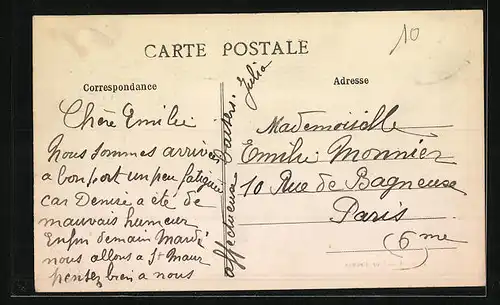 10
CARTE POSTALE
Correspondance
Adresse
Chère Emilie
Nous sommes arrivé
a bon port un peu fatigué
car Denise a été de
mauvais humeur
Enfin demain Mardi
nous allons a St Maur
pensez bien a nous
affectueux Baisers. Julia
Mademoiselle
Emilie Monnier
10 Rue de Bagneux
Paris
(6me)